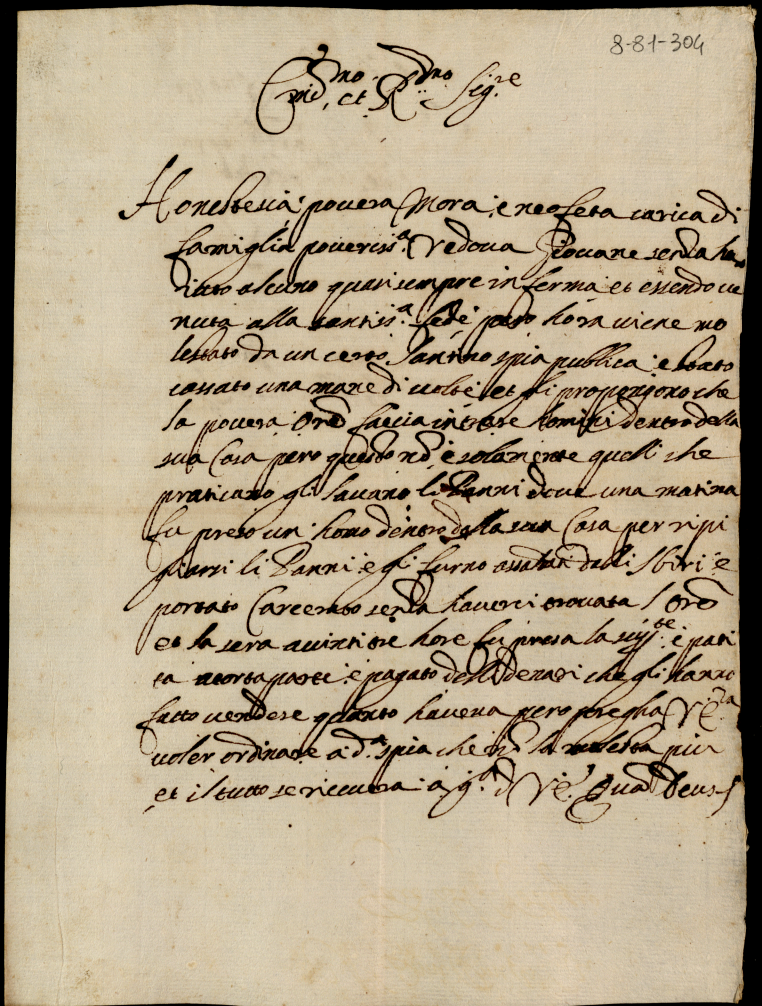 8-81-304
Em.mo et R.mo Sig.re
Honestesia povera Mora e neofeta carica di
famiglia poveriss.a Vedova Giovane senza ha
iuto alcuno quasi sempre inferma et essendo ve
nuta alla santiss.a fede però hora viene mo
lestato da un certo Santino spia publica e stato
cassato una mane di volte et gli propongono che
la povera Ore faccia intrare homini dentro della
sua Casa pero questo nõ è solamente quelli che
praticano gli lavano li Panni dove una matina
fu preso un homo dentro della sua Casa per ripi
gliarsi li Panni e gli furno assaltati dalli Sbiri e
portato Carcerato senza haverci trovata l Ore
et la sera a vinti tre hore fu presa la sud.te e pati
ta a torto parte e pagato delli denari che gli hanno
fatto vendere quanto haveva pero pregha V.E.za
voler ordinare a d.a spia che nõ la molesta piu
et il tutto se ricevera a g.a d V.E. Quã Deus